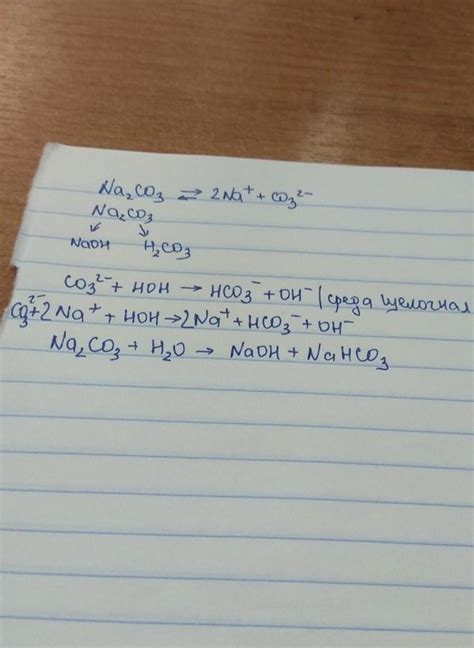 Na₂CO₃ ⇄ 2Na⁺ + CO₃²⁻
Na₂CO₃
↙ ↘
NaOH H₂CO₃
CO₃²⁻ + HOH → HCO₃⁻ + OH⁻ | среда щелочная
CO₃²⁻ + 2Na⁺ + HOH → 2Na⁺ + HCO₃⁻ + OH⁻
Na₂CO₃ + H₂O → NaOH + NaHCO₃